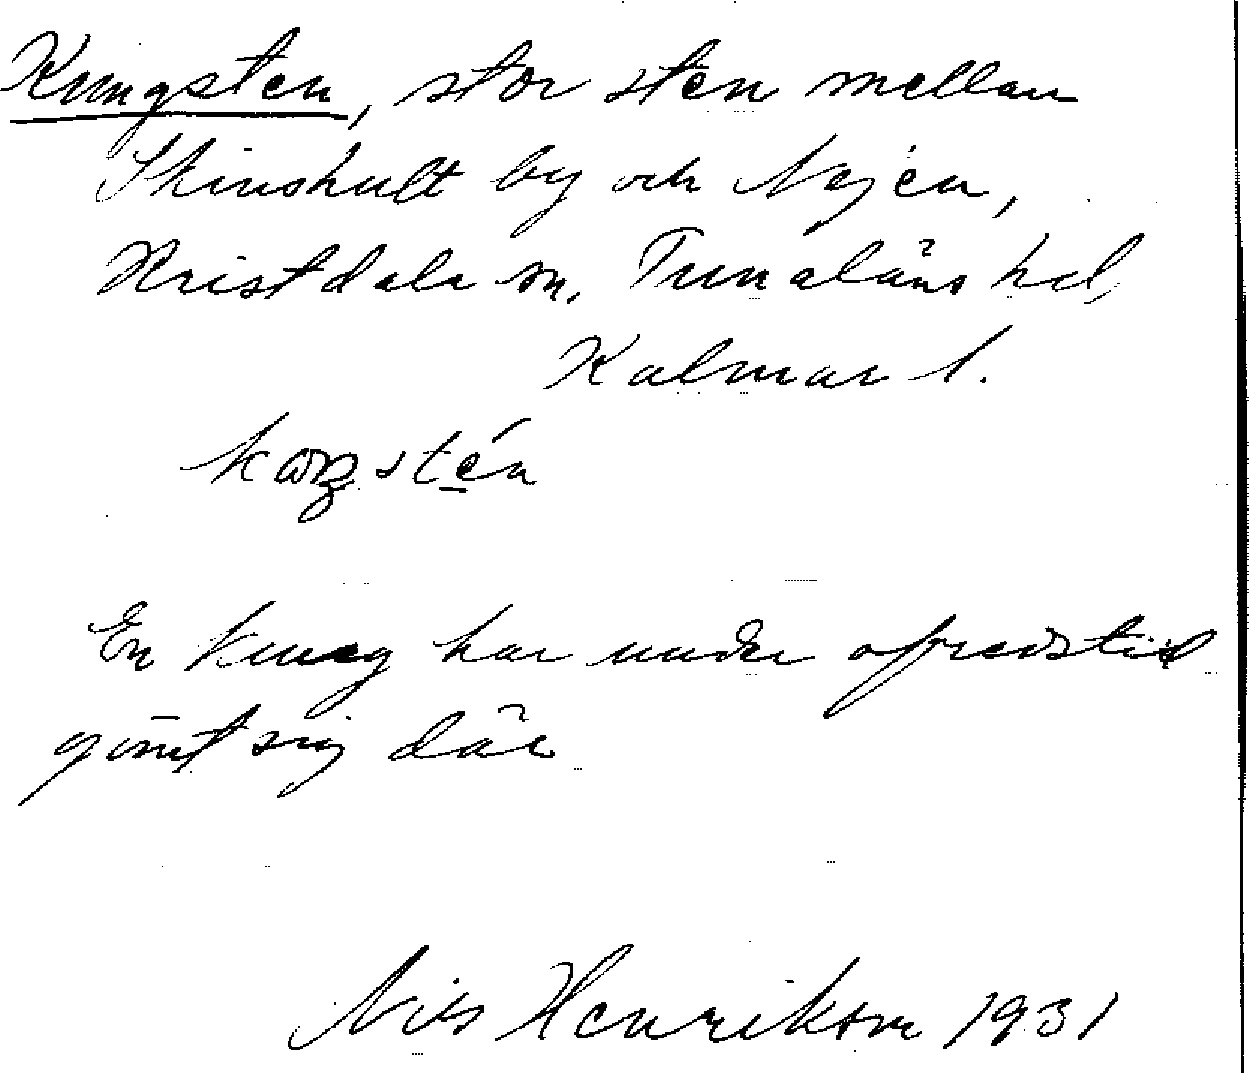 Kungsten, stor sten mellan
Skinshult by och Nejen,
Kristdala sn, Tunaläns hd,
Kalmar l.
En kung har under ofredstid
gömt sig där
Nils Henrikson 1931